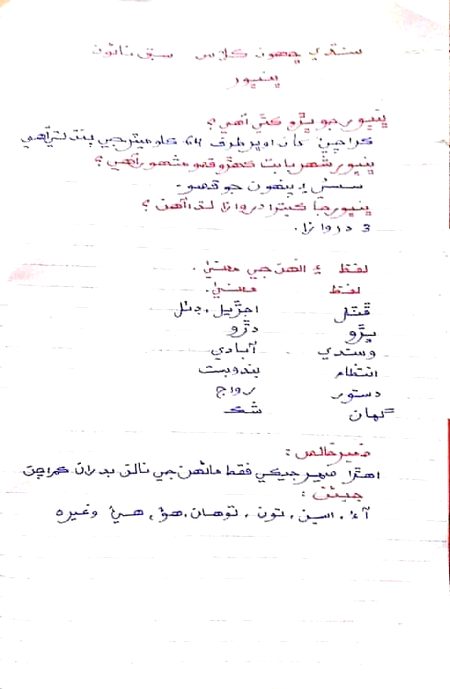 سنڌي ڇهون ڪلاس سبق نائون
ڀنڀور
ڀنڀور جو ڀڙو ڪٿي آهي؟
ڪراچيءَ کان اوڀر طرف 64 ڪلوميٽر جي پنڌ تي آهي
ڀنڀور شهر بابت ڪهڙو قصو مشهور آهي؟
سسئي ۽ پنهون جو قصو۔
ڀنڀور جا ڪيترا دروازا لڌا آهن؟
3 دروازا.
لفظ ۽ انهن جي معنيٰ.
لفظ معنيٰ.
ڦٽل اجڙيل، ڊٺل
ڀڙو دڙو
وسندي آبادي
انتظام بندوبست
دستور رواج
گمان شڪ
ضمير خالص:
اهڙا ضمير جيڪي فقط ماڻهن جي نالن بدران ڪم اچن
جيئن:
آءٌ، اسين، تون، توهان، هو، هيءُ وغيره